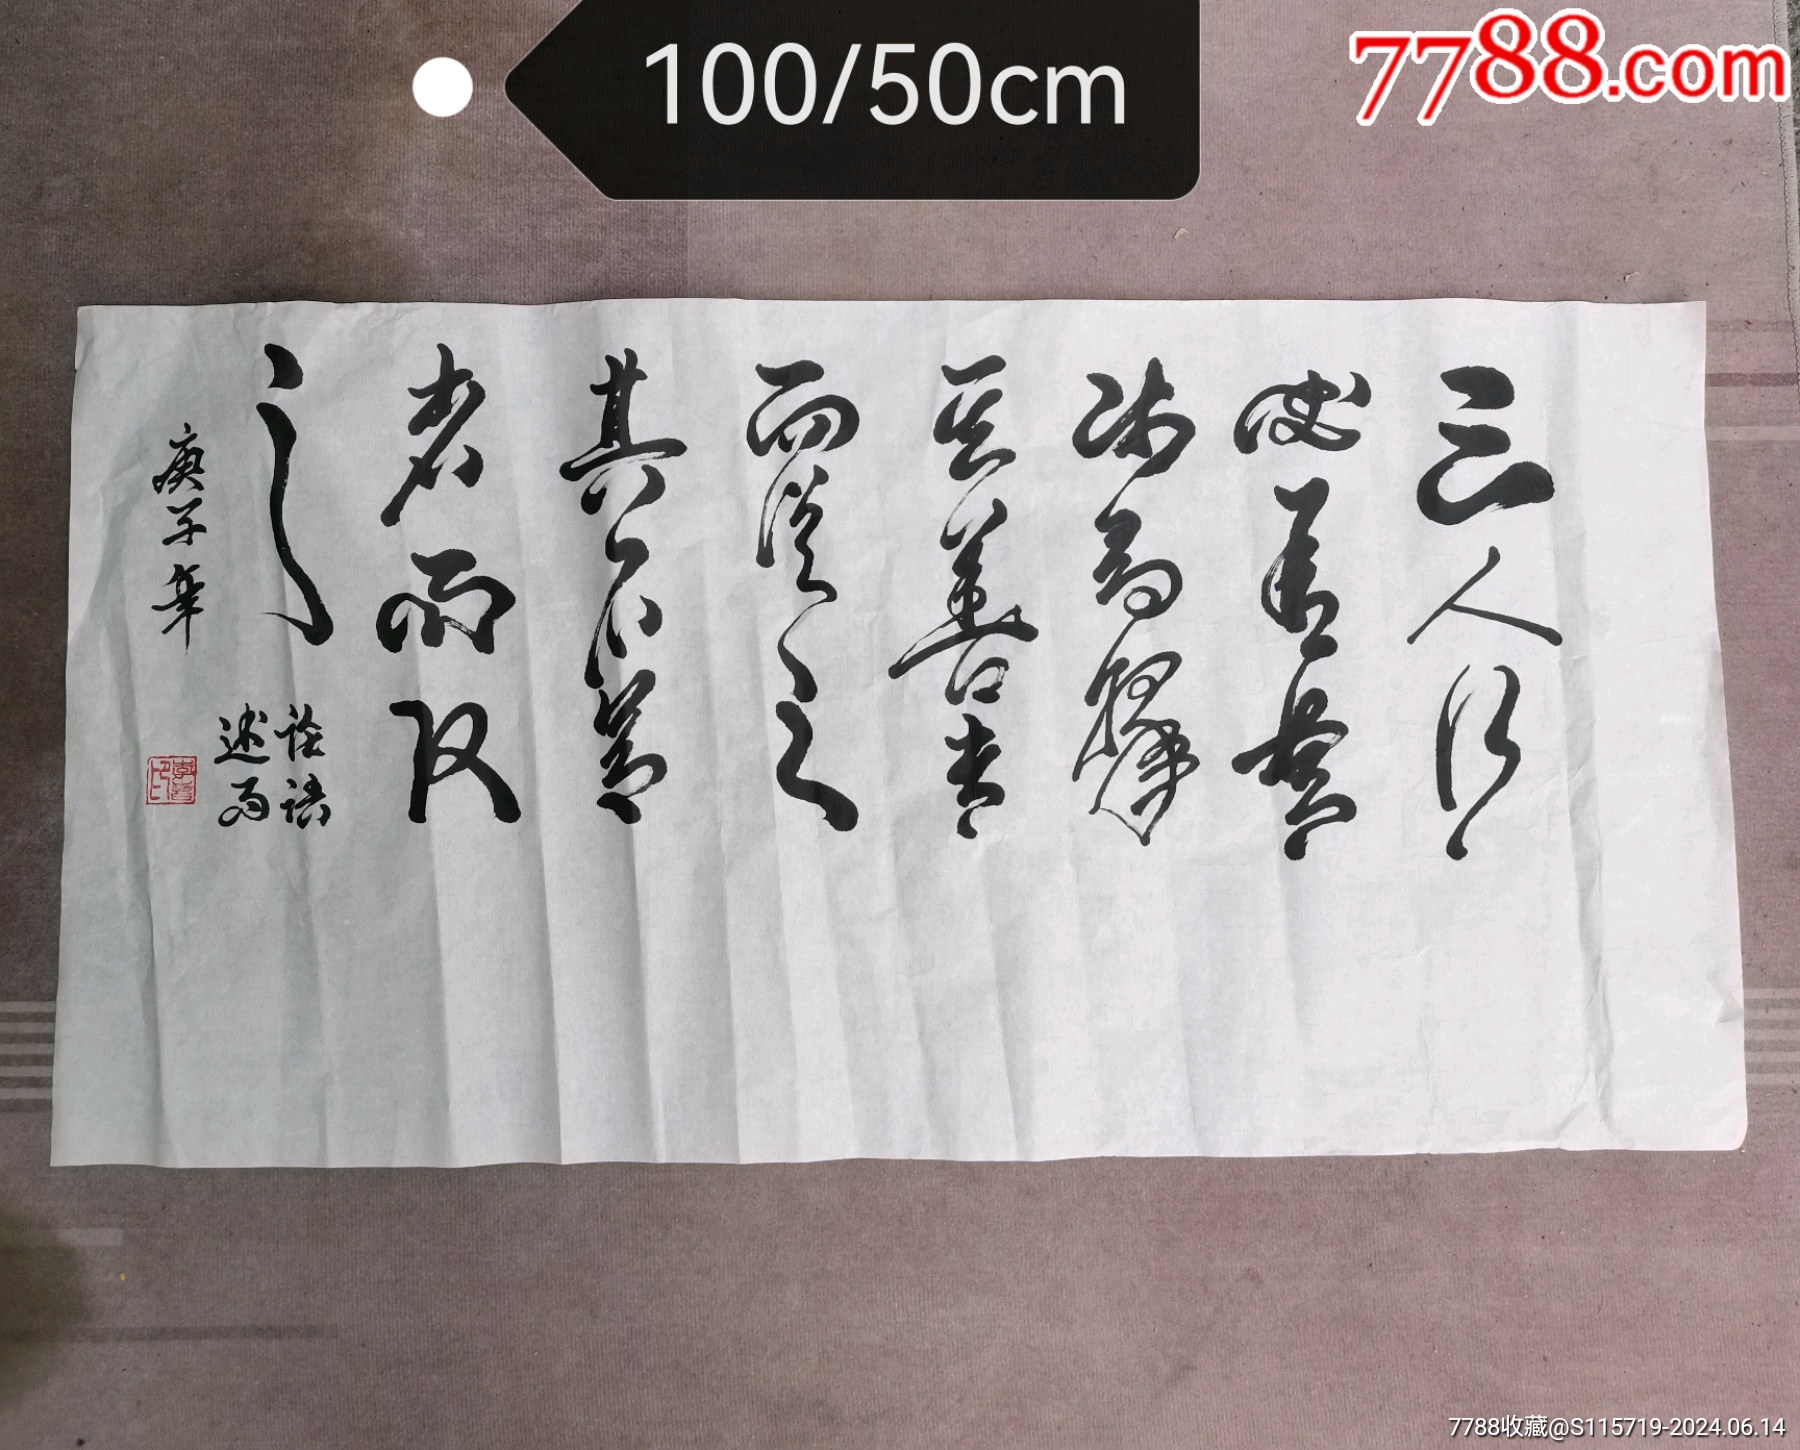 100/50cm
7788.com
三人行
必有我
師焉擇
其善者
而從之
其不善
者而改
之
論語
述而
庚子
7788收藏@S115719-2024.06.14